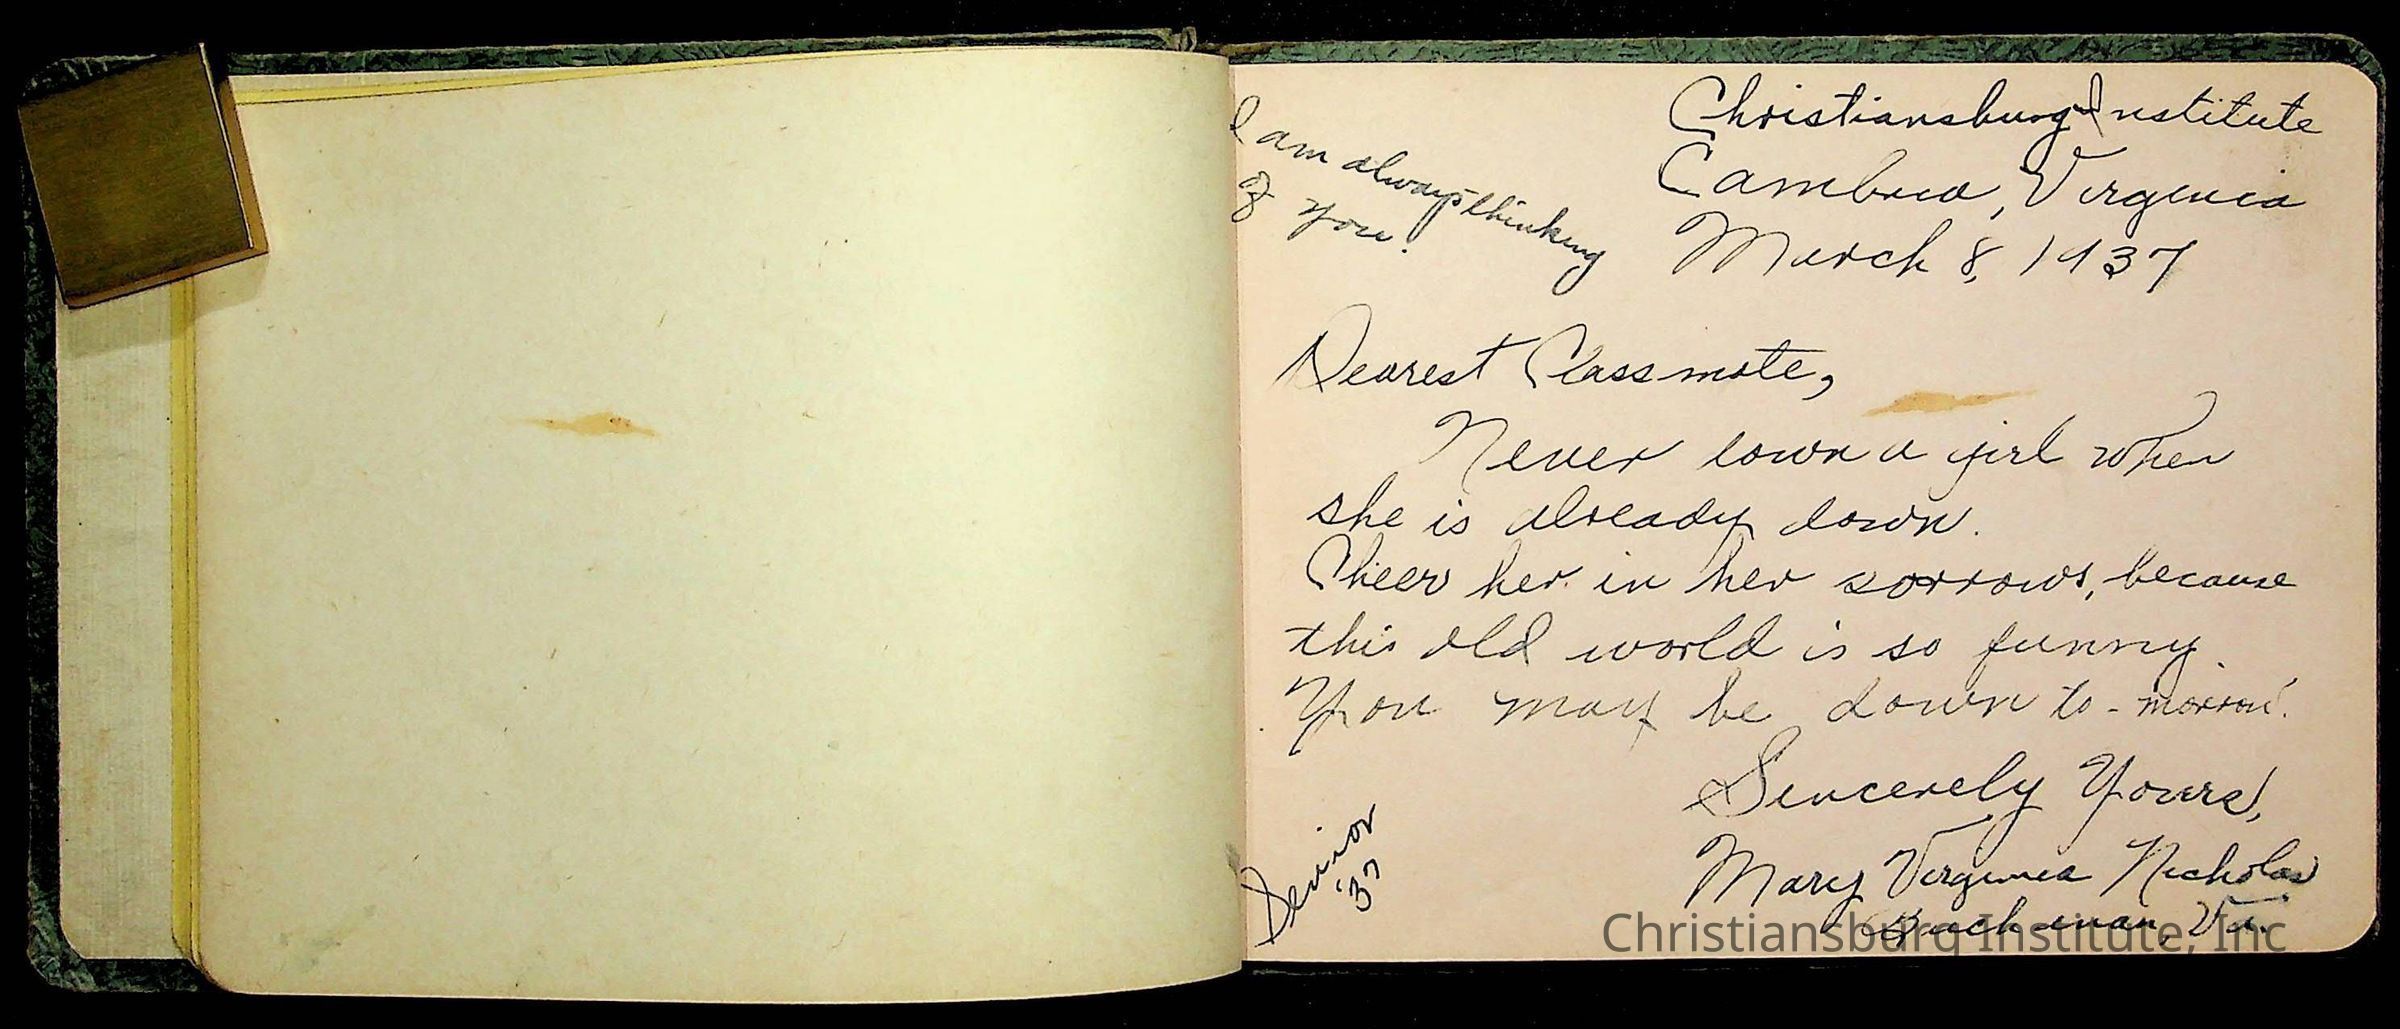 I am always thinking
of you.
Christiansburg Institute
Cambria, Virginia
March 8, 1937
Dearest Classmate,
Never down a girl when
she is already down.
Cheer her in her sorrows, because
this old world is so funny.
You may be down to-morrow.
Sincerely Yours,
Mary Virginia Nicholas
Buchanan, Va.
Senior
'37
Christiansburg Institute, Inc